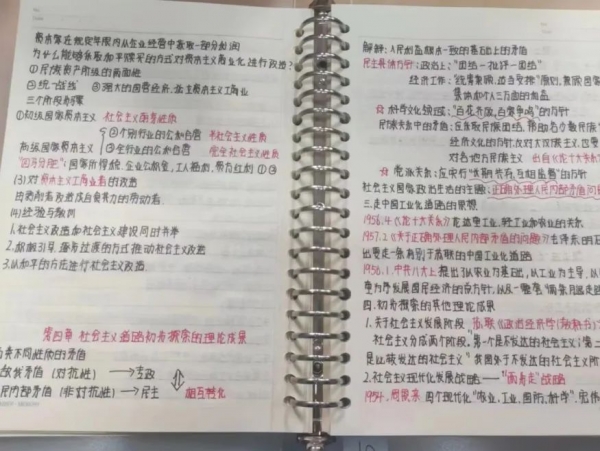 资本家在规定年限内从企业经营中获取一部分利润
为什么能够采取和平赎买的方式对资本主义工商业进行改造?
①民族资产阶级的两面性
②统一战线 ③强大的国营经济
三个阶段
①初级国家资本主义 社会主义因素
②个别行业的公私合营 半社会主义性质
高级国家资本主义 ③全行业的公私合营 完全社会主义性质
"四马分肥":国家所得税、企业公积金、工人福利、资方红利 ①②
(3)对资本主义工商业者的改造
由剥削者改造成自食其力的劳动者
(4)经验与教训
1.社会主义改造和社会主义建设同时并举
2.积极引导、逐步过渡的方式推动社会主义改造
3.以和平的方法进行社会主义改造
第四章 社会主义道路初步探索的理论成果
不同性质的矛盾
敌我矛盾(对抗性)→专政
民内部矛盾(非对抗性)→民主 相互转化
解释:人民利益根本一致的基础上的矛盾
民主具体方针:政治上:"团结—批评—团结"
经济工作:"统筹兼顾、适当安排"原则,兼顾国家
集体和个人三方面的利益
科学文化领域:"百花齐放,百家争鸣"的方针
民族关系中的矛盾:在
经济文化的方针,反对大汉族主义,也要
对各地方民族主义 出自《论十大关系》
党派关系:在坚持"长期共存、互相监督"的方针
社会主义国家政治生活的主题:正确处理人民内部矛盾问
三.走中国工业化道路的思想
1956.4《论十大关系》论述重工业、轻工业和农业的关系
1957.2《关于正确处理人民内部矛盾的问题》毛泽东明
出要走一条有别于苏联的中国工业化道路
中共八大上提出了以农业为基础,以工业为主导,以
重为序发展国民经济的总方针,以及一整套"两条腿走
四.初步探索的其他理论成果
1.关于社会主义发展阶段,苏联《政治经济学(教科书)》
社会主义分成两个阶段。第一个是不发达的社会主义;第二
是比较发达的社会主义" 我国处于不发达的社会主义所
2.社会主义现代化发展战略——"两步走"战略
1954.周恩来 四个现代化"农业、工业、国防、科学"